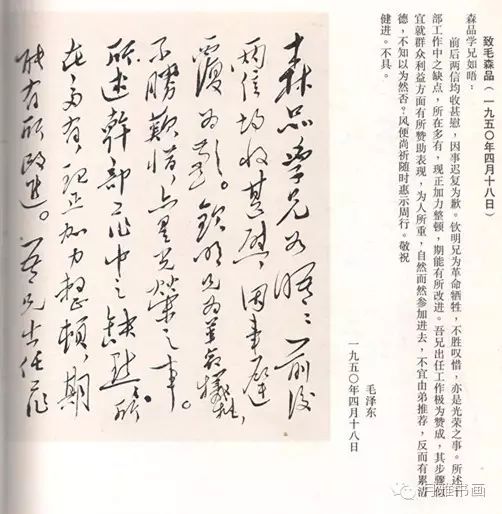 致毛森品（一九五〇年四月十八日）
森品学兄如晤：
前后两信均收甚慰，因事迟复为歉。钦明兄为革命牺牲，不胜叹惜，亦是光荣之事。所述干
部工作中之缺点，所在多有，现正加力整顿，期能有所改进。吾兄出任工作极为赞成，其步骤似
宜就群众利益方面有所赞助表现，为人所重，自然而然参加进去，不宜由弟推荐，反而有累清
德，不知以为然否。风便尚祈随时惠示周行。敬祝
健进。不具。
毛泽东
一九五〇年四月十八日
森品學兄如晤：前後
两信均收甚慰，因事遲
覆为歉。欽明兄为革命犧牲，
不勝歎惜，亦是光榮之事。
所述幹部工作中之缺點，所
在多有，現正加力整頓，期
能有所改進。吾兄出任工作
书画